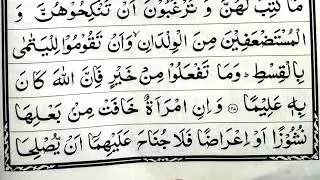 مَا كُتِبَ لَهُنَّ وَ تَرْغَبُوْنَ اَنْ تَنْكِحُوْهُنَّ وَ
الْمُسْتَضْعَفِيْنَ مِنَ الْوِلْدَانِ ۙ وَاَنْ تَقُوْمُوْا لِلْيَتٰمٰى
بِالْقِسْطِ ؕ وَمَا تَفْعَلُوْا مِنْ خَيْرٍ فَاِنَّ اللّٰهَ كَانَ
بِهٖ عَلِيْمًا ۝۱۲۷ وَاِنِ امْرَاَةٌ خَافَتْ مِنْۢ بَعْلِهَا
نُشُوْزًا اَوْ اِعْرَاضًا فَلَا جُنَاحَ عَلَيْهِمَاۤ اَنْ يُّصْلِحَا